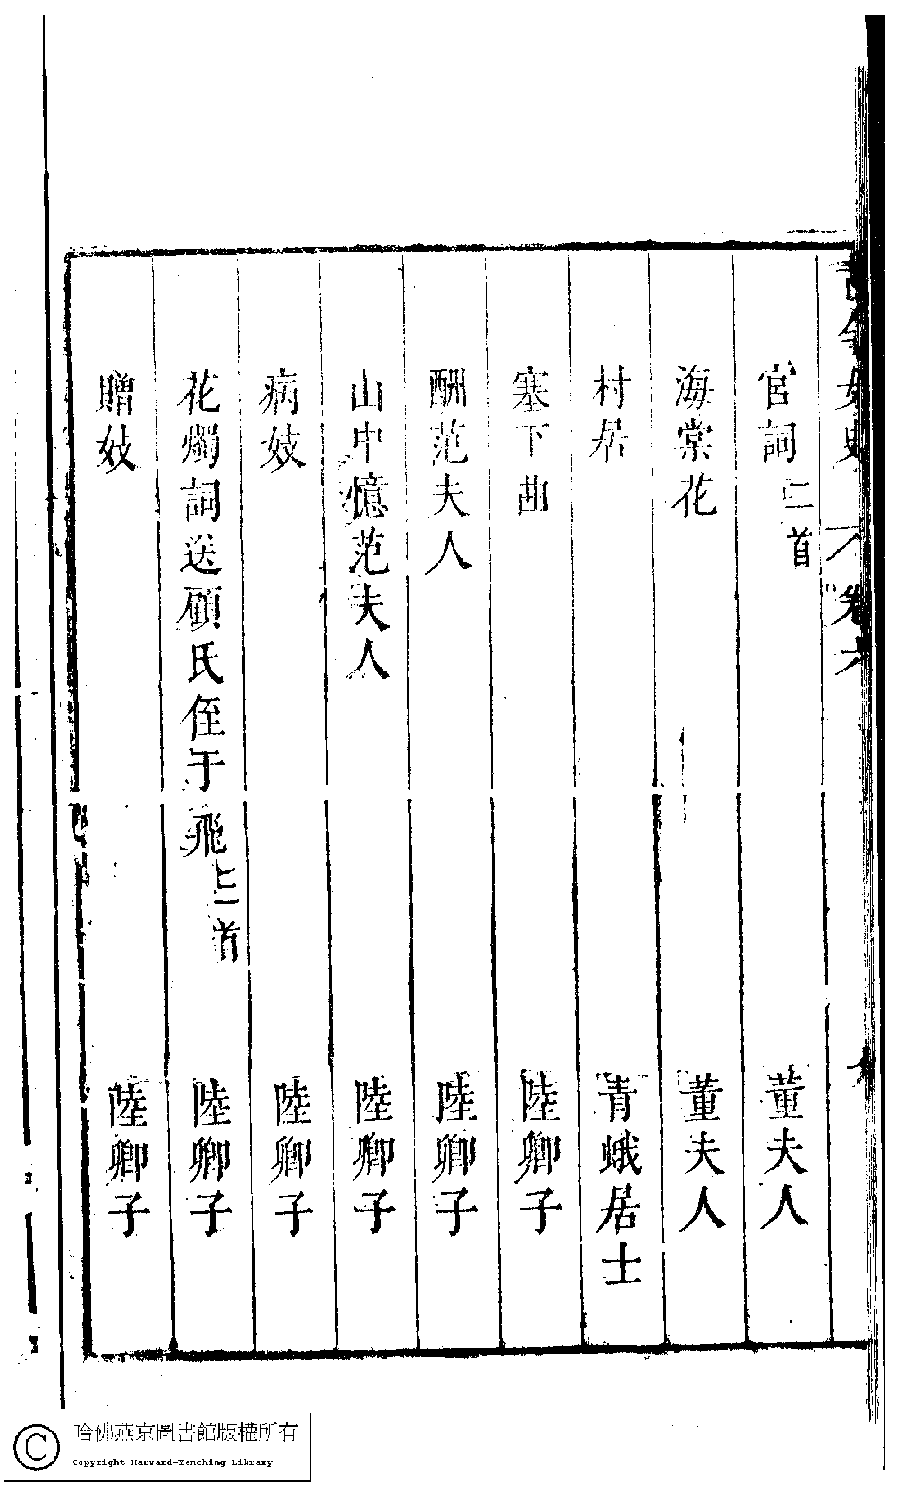 女史 卷六
宮詞二首 董夫人
海棠花 董夫人
村居 青蛾居士
塞下曲 陸卿子
酬范夫人 陸卿子
山中憶范夫人 陸卿子
病妓 陸卿子
花燭詞送顧氏侄于飛三首 陸卿子
贈妓 陸卿子
哈佛燕京圖書館版權所有
Copyright Harvard-Yenching Library